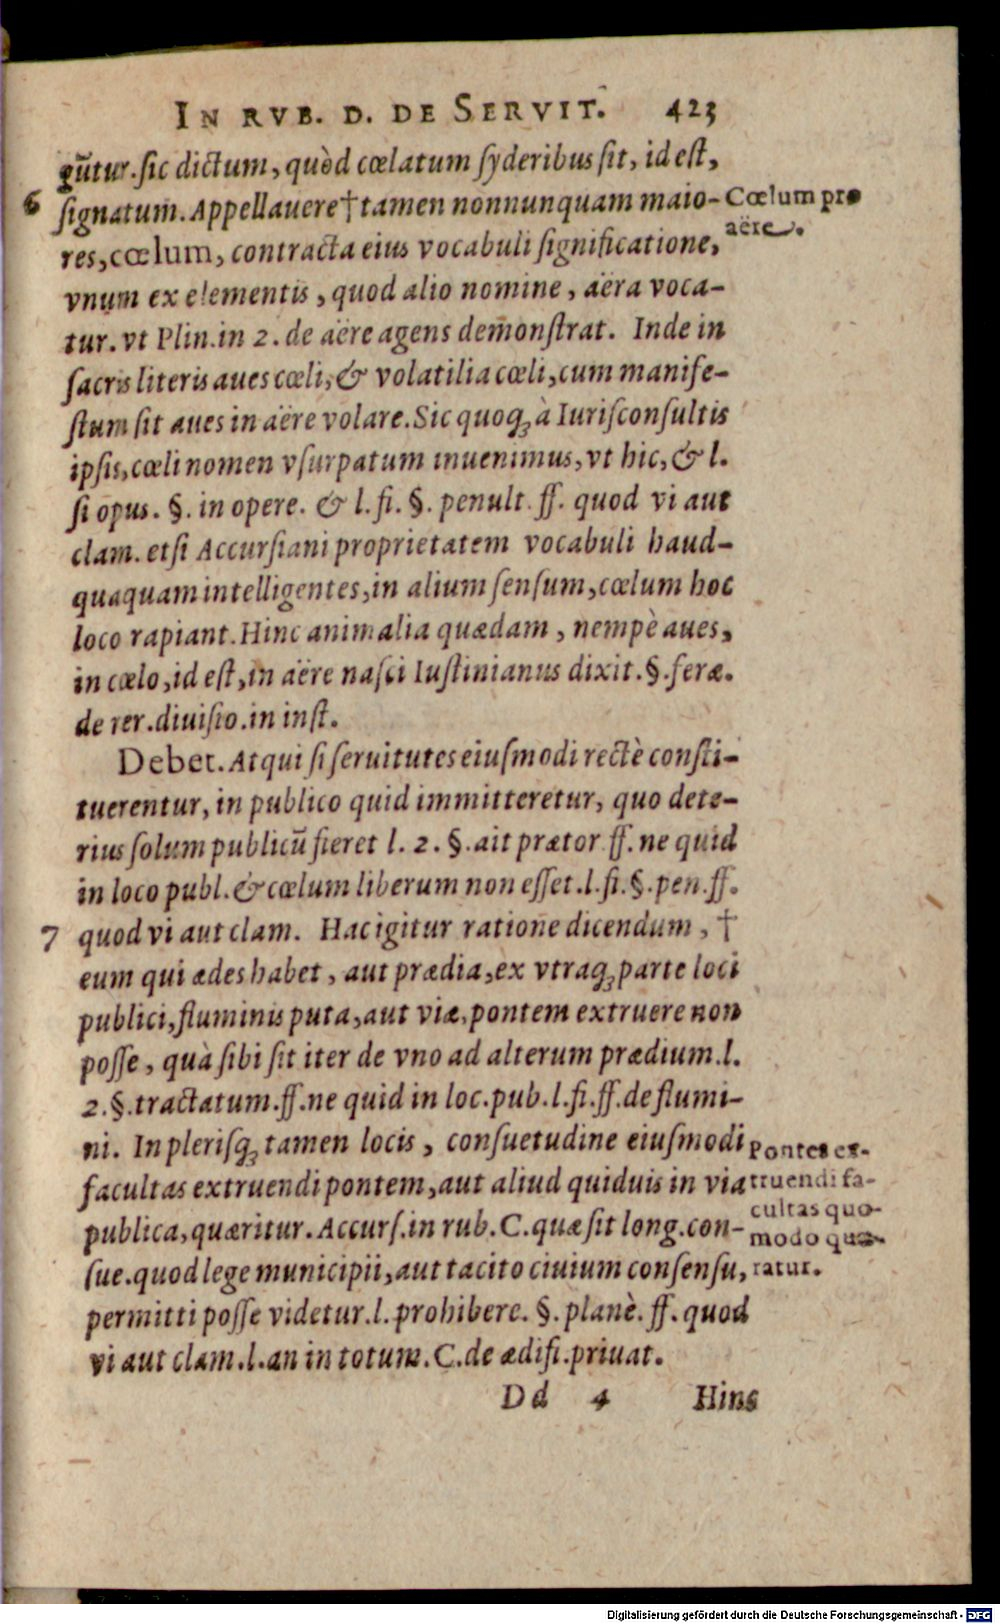 IN RVB. D. DE SERVIT. 423
gūtur. sic dictum, quòd cœlatum syderibus sit, id est,
6 signatum. Appellauere † tamen nonnunquam maio-
Cœlum pro
aëre.
res, cœlum, contracta eius vocabuli significatione,
vnum ex elementis, quod alio nomine, aëra voca-
tur. vt Plin. in 2. de aëre agens demonstrat. Inde in
sacris literis aues cœli, & volatilia cœli, cum manife-
stum sit aues in aëre volare. Sic quoq; à Iurisconsultis
ipsis, cœli nomen vsurpatum inuenimus, vt hic, & l.
si opus. §. in opere. & l. fi. §. penult. ff. quod vi aut
clam. etsi Accursiani proprietatem vocabuli haud-
quaquam intelligentes, in alium sensum, cœlum hoc
loco rapiant. Hinc animalia quædam, nempè aues,
in cœlo, id est, in aëre nasci Iustinianus dixit. §. feræ.
de rer. diuisio. in inst.
Debet. Atqui si seruitutes eiusmodi rectè consti-
tuerentur, in publico quid immitteretur, quo dete-
rius solum publicū fieret l. 2. §. ait prætor ff. ne quid
in loco publ. & cœlum liberum non esset. l. fi. §. pen. ff.
7 quod vi aut clam. Hac igitur ratione dicendum, †
eum qui ædes habet, aut prædia, ex vtraq; parte loci
publici, fluminis puta, aut viæ, pontem extruere non
posse, quà sibi sit iter de vno ad alterum prædium. l.
2. §. tractatum. ff. ne quid in loc. pub. l. fi. ff. de flumi-
ni. In plerisq; tamen locis, consuetudine eiusmodi
Pontes ex-
truendi fa-
cultas quo-
modo quæ-
ratur.
facultas extruendi pontem, aut aliud quiduis in via
publica, quæritur. Accurs. in rub. C. quæ sit long. con-
sue. quod lege municipii, aut tacito ciuium consensu,
permitti posse videtur. l. prohibere. §. planè. ff. quod
vi aut clam. l. an in totum. C. de ædifi. priuat.
Dd 4 Hinc
Digitalisierung gefördert durch die Deutsche Forschungsgemeinschaft - DFG